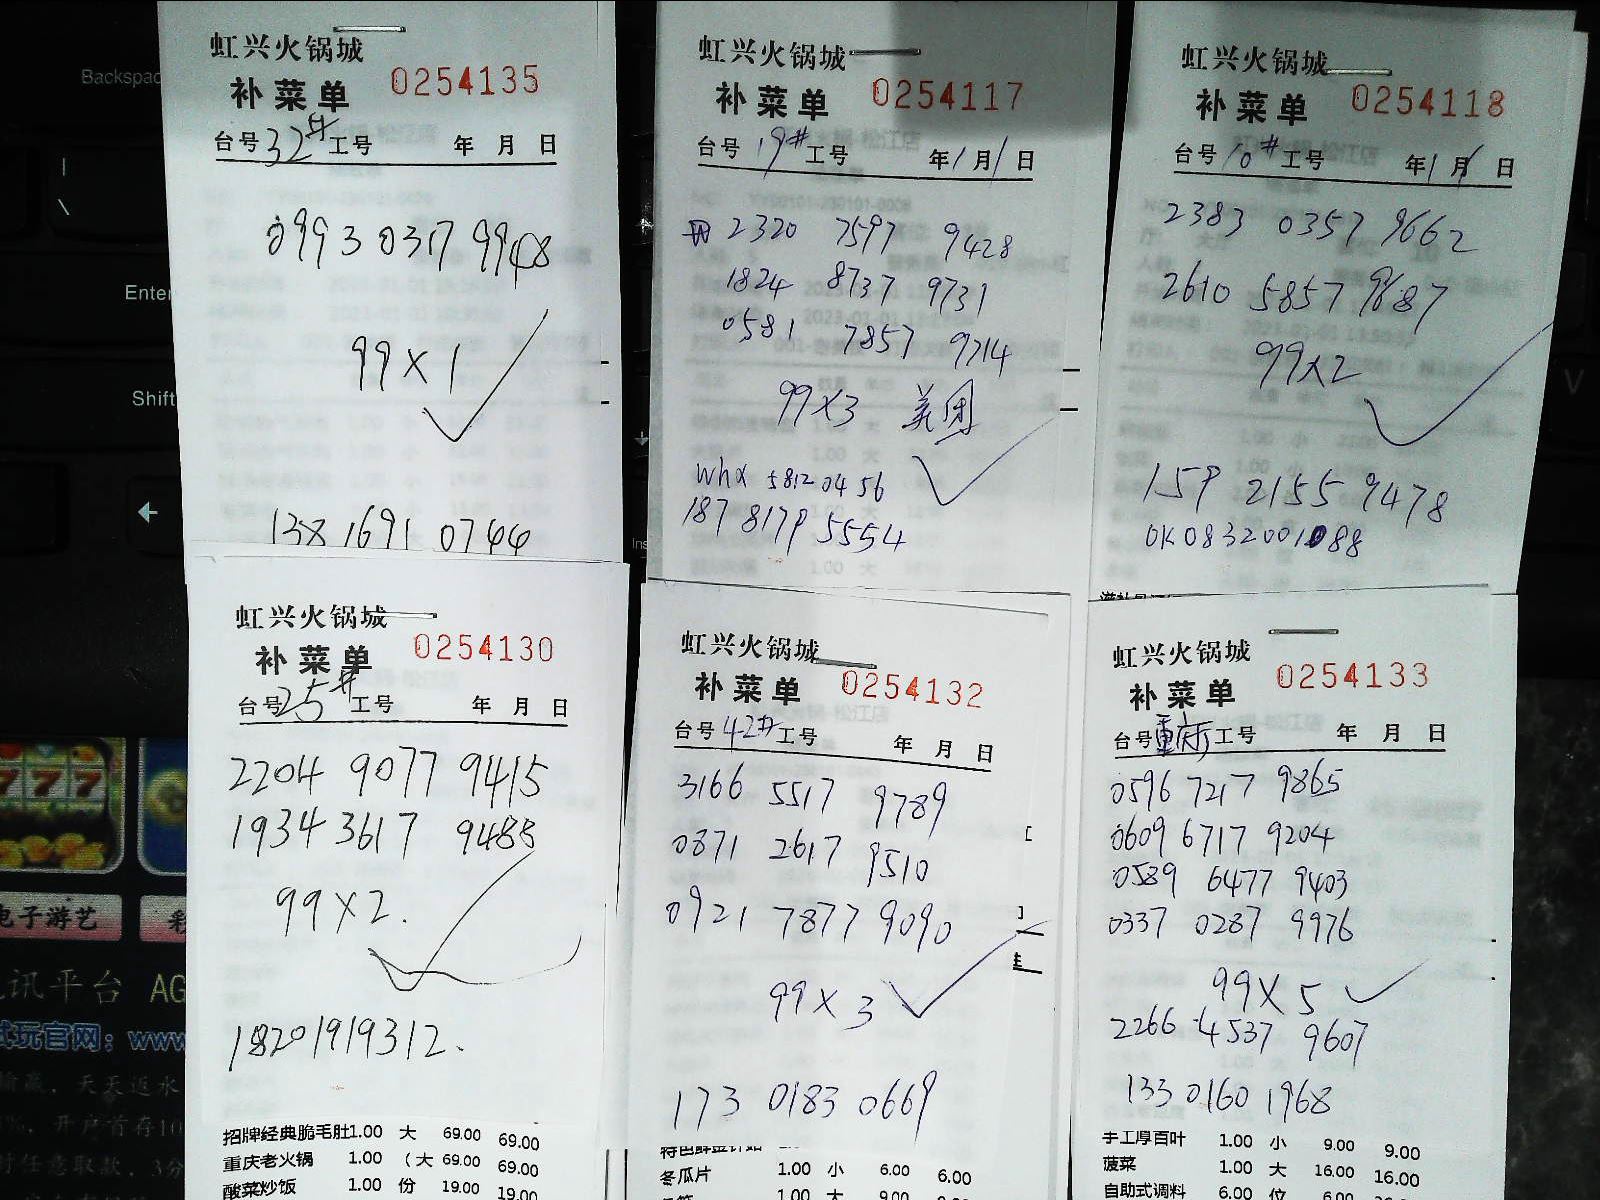 虹兴火锅城
补菜单 0254135
台号 32# 工号 年 月 日
0993 0317 9948
99×1
138 1691 0744
虹兴火锅城
补菜单 0254117
台号 19# 工号 年 1 月 1 日
2320 7597 9428
1824 8737 9731
0581 7857 9714
99×3 美团
whx 5812 0456
187 8179 5554
虹兴火锅城
补菜单 0254118
台号 10# 工号 年 1 月 1 日
2383 0357 9662
2610 5857 9687
99×2
159 2155 9478
0K0832001088
虹兴火锅城
补菜单 0254130
台号 25# 工号 年 月 日
2204 9077 9415
1934 3617 9488
99×2.
18201919312.
招牌经典脆毛肚 1.00 大 69.00 69.00
重庆老火锅 1.00 (大 69.00 69.00
酸菜炒饭 1.00 份 19.00 19.00
虹兴火锅城
补菜单 0254132
台号 42# 工号 年 月 日
3166 5517 9789
0871 2617 9510
0921 7877 9090
99×3
173 0183 0669
冬瓜片 1.00 小 6.00 6.00
1.00 大 9.00
虹兴火锅城
补菜单 0254133
台号 重庆 工号 年 月 日
0596 7217 9865
0609 6717 9204
0589 6477 9403
0337 0287 9976
99×5
2266 4537 9607
133 0160 1968
手工厚百叶 1.00 小 9.00 9.00
菠菜 1.00 大 16.00 16.00
自助式调料 6.00 位 6.00
Backspac
Enter
Shift
Ins
电子游艺
讯平台 AG
试玩官网：www
天天返水
开户首存10
时任意取款，3分